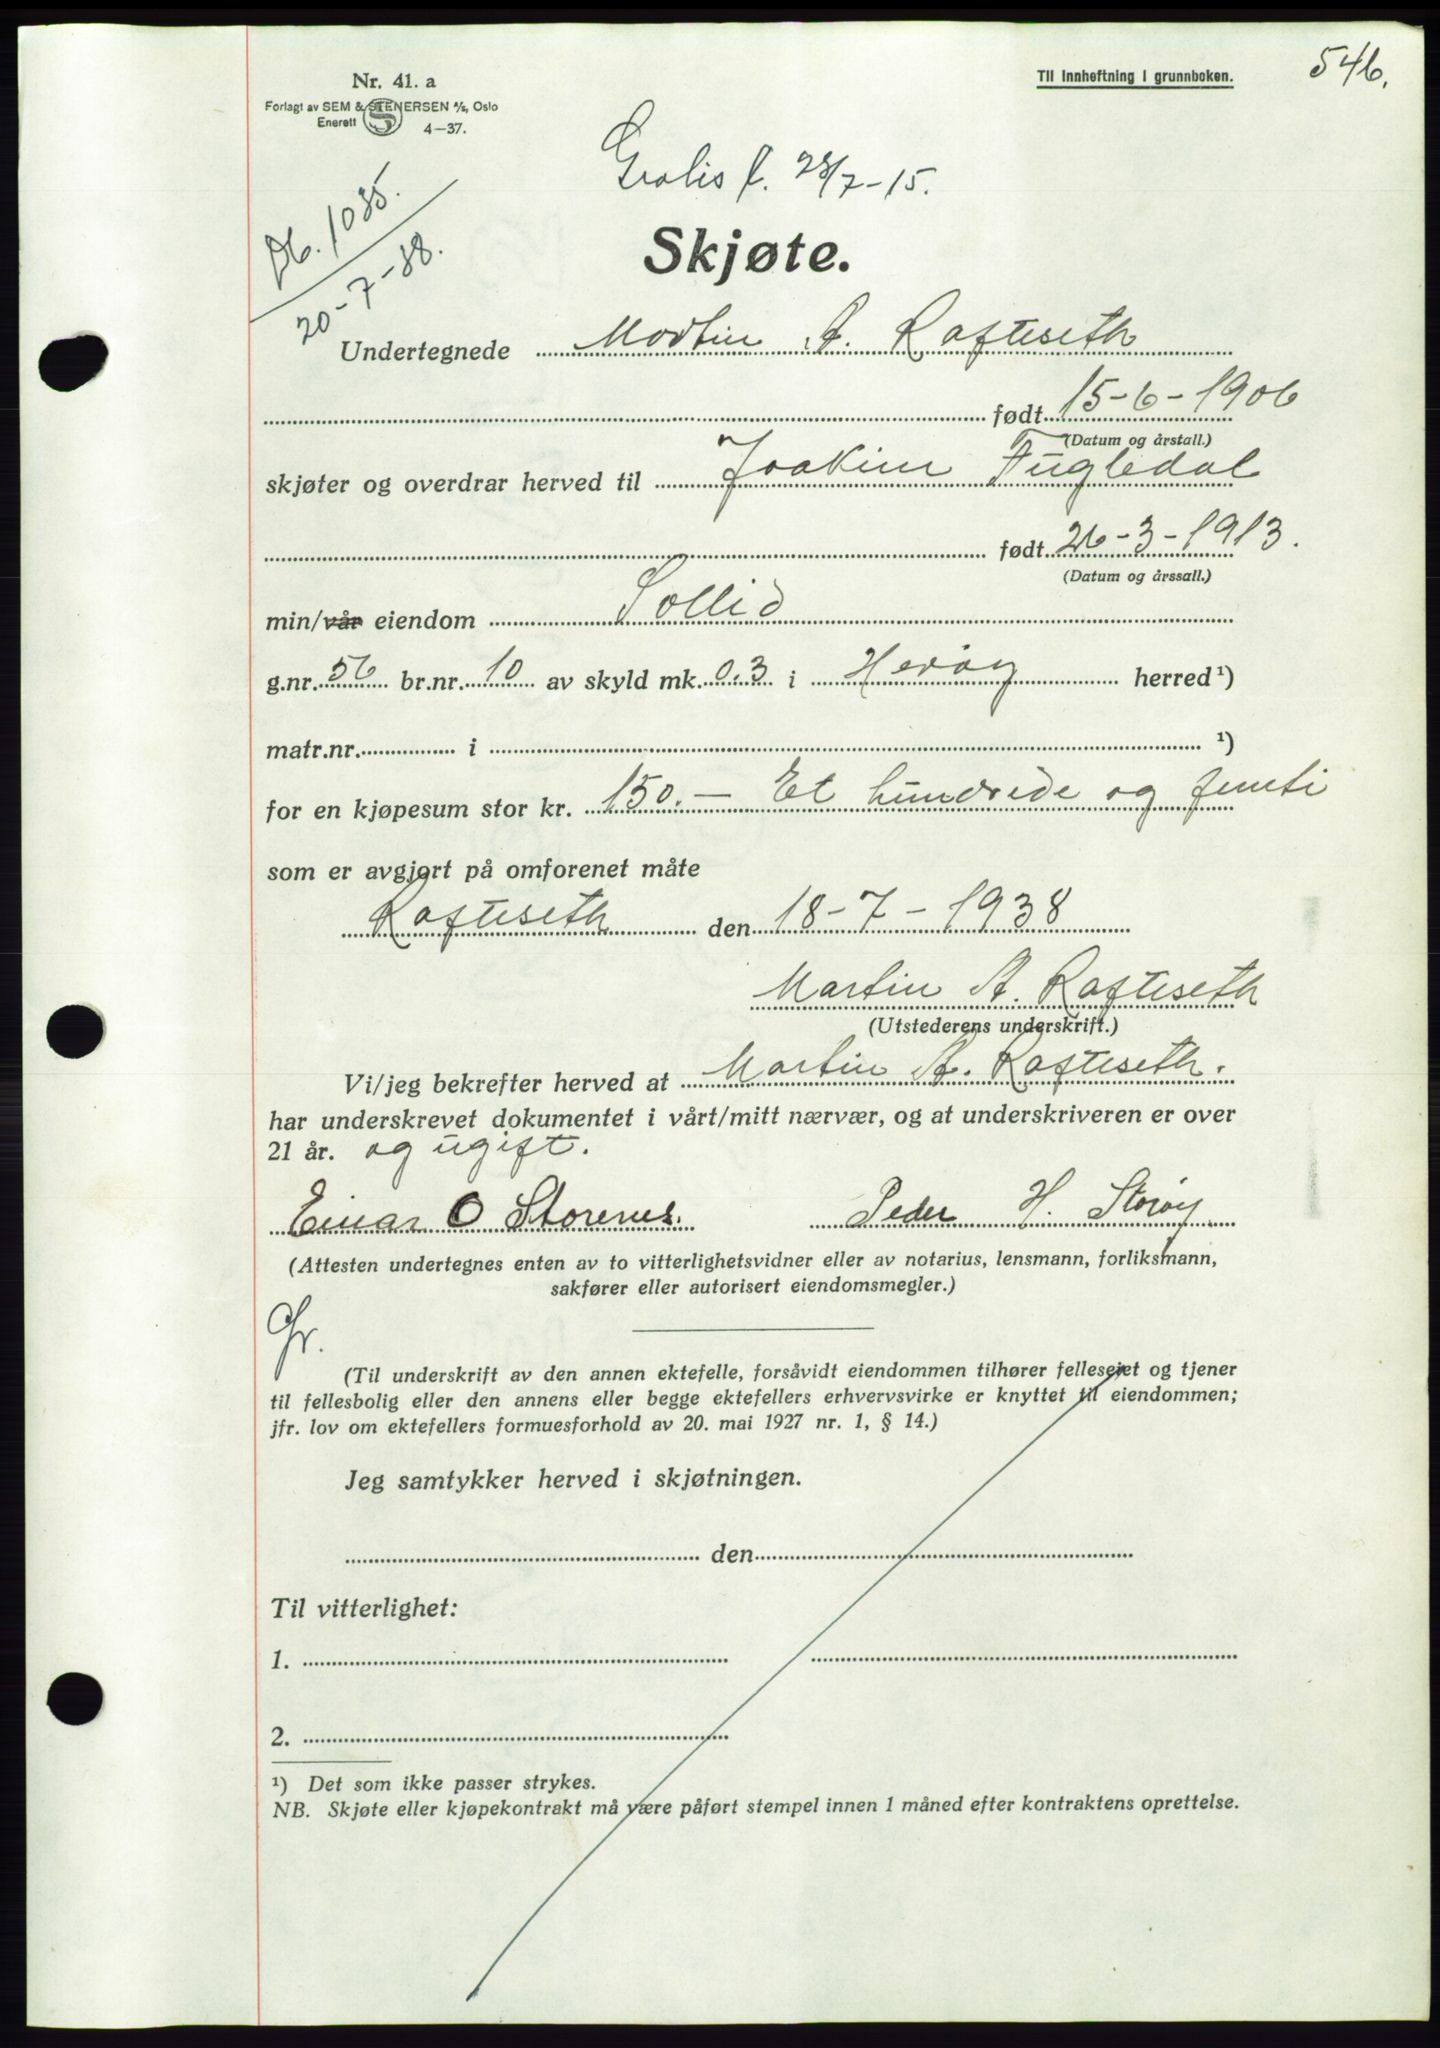 546.
Til innheftning i grunnboken.
Nr. 41. a
Forlagt av SEM & STENERSEN A/S, Oslo
Enerett 4—37.
Gratis l. 28/7-15.
Db. 1085.
20-7-38.
Skjøte.
Undertegnede Martin A. Rafteseth
født 15-6-1906
(Datum og årstall.)
skjøter og overdrar herved til Joakim Fugledal
født 26-3-1913.
(Datum og årssall.)
min/vår eiendom Sollid
g.nr. 56 br.nr. 10 av skyld mk. 0.3 i Herøy herred ¹)
matr.nr. i ¹)
for en kjøpesum stor kr. 150.- Et hundrede og femti
som er avgjort på omforenet måte
Rafteseth den 18-7-1938
Martin A. Rafteseth
(Utstederens underskrift.)
Vi/jeg bekrefter herved at Martin A. Rafteseth.
har underskrevet dokumentet i vårt/mitt nærvær, og at underskriveren er over
21 år. og ugift.
Einar O Storenes. Peder H. Storøy
(Attesten undertegnes enten av to vitterlighetsvidner eller av notarius, lensmann, forliksmann,
sakfører eller autorisert eiendomsmegler.)
Gr.
(Til underskrift av den annen ektefelle, forsåvidt eiendommen tilhører felleseiet og tjener
til fellesbolig eller den annens eller begge ektefellers erhvervsvirke er knyttet til eiendommen;
jfr. lov om ektefellers formuesforhold av 20. mai 1927 nr. 1, § 14.)
Jeg samtykker herved i skjøtningen.
den
Til vitterlighet:
1.
2.
¹) Det som ikke passer strykes.
NB. Skjøte eller kjøpekontrakt må være påført stempel innen 1 måned efter kontraktens oprettelse.